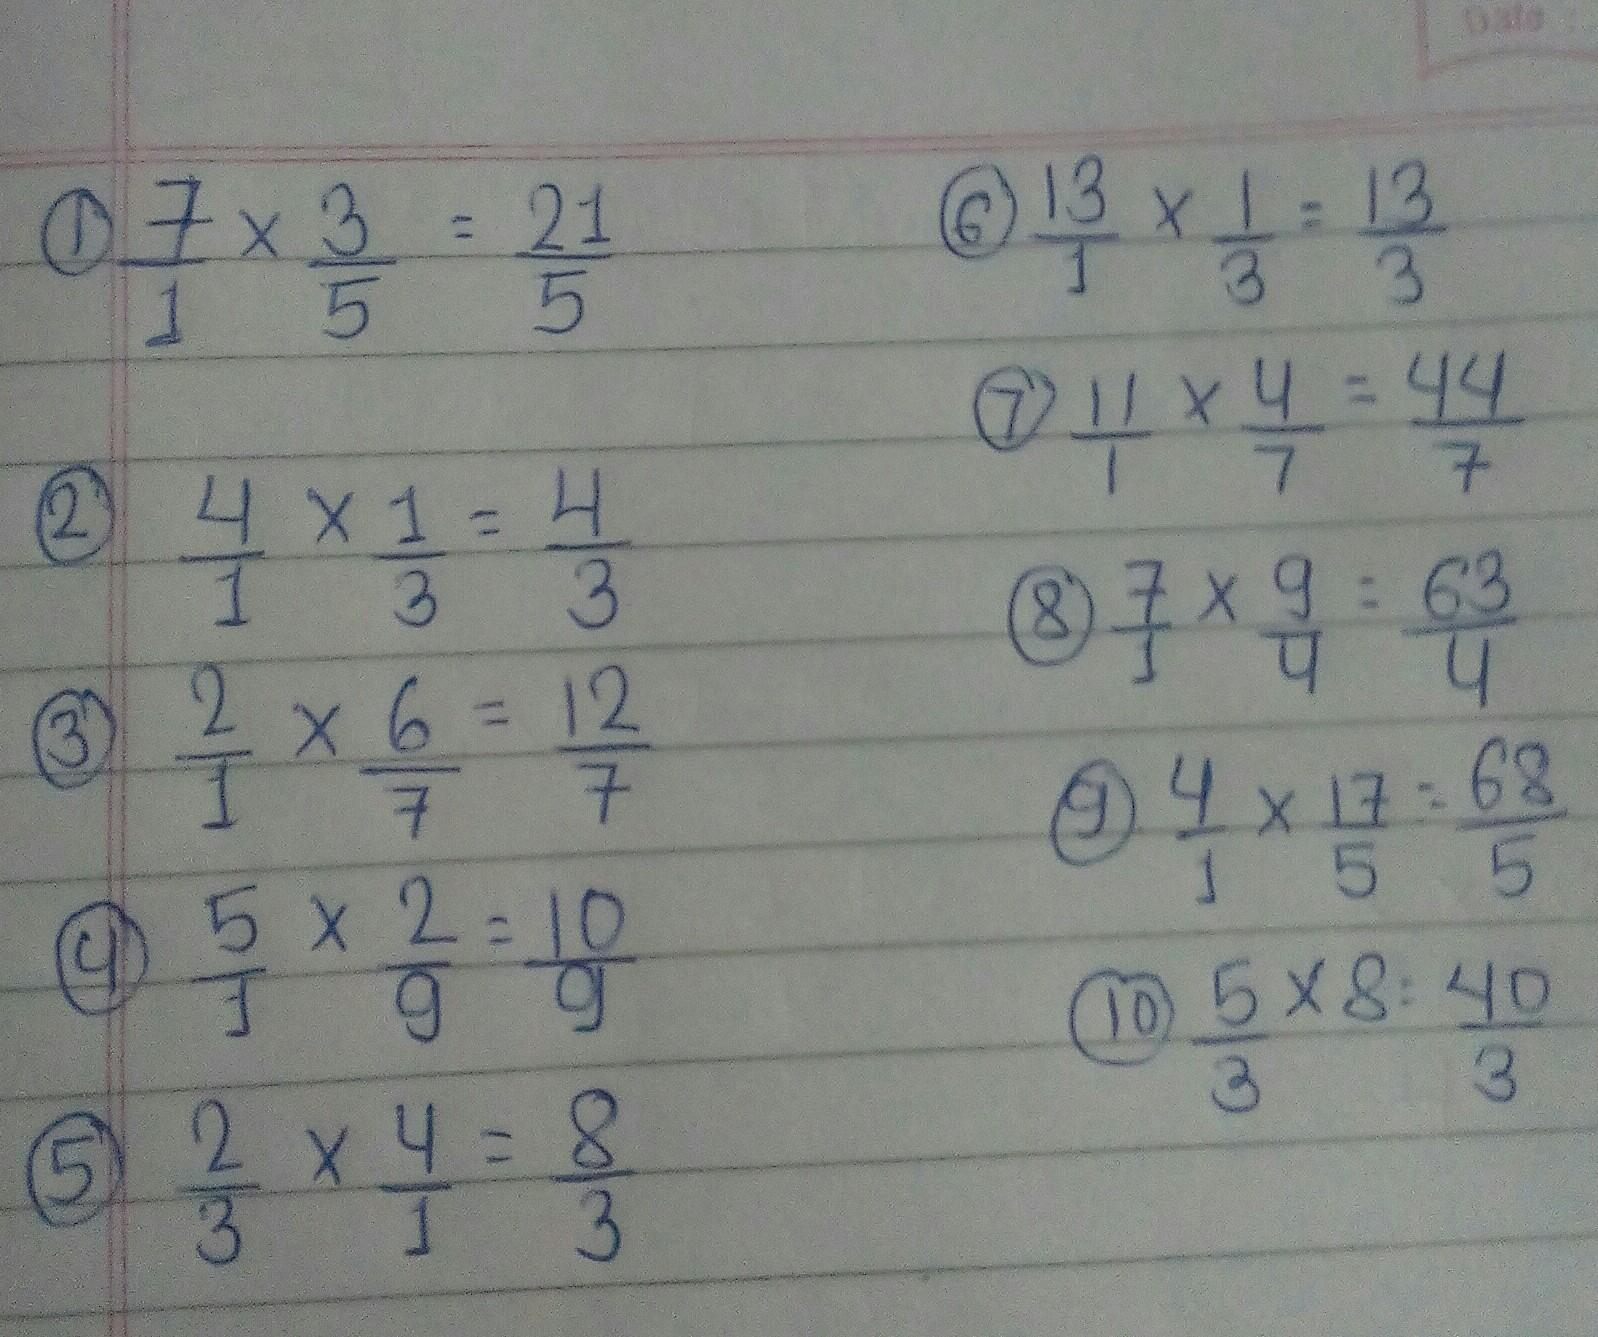 Date :
① 7/1 × 3/5 = 21/5
② 4/1 × 1/3 = 4/3
③ 2/1 × 6/7 = 12/7
④ 5/1 × 2/9 = 10/9
⑤ 2/3 × 4/1 = 8/3
⑥ 13/1 × 1/3 = 13/3
⑦ 11/1 × 4/7 = 44/7
⑧ 7/1 × 9/4 = 63/4
⑨ 4/1 × 17/5 = 68/5
⑩ 5/3 × 8 = 40/3